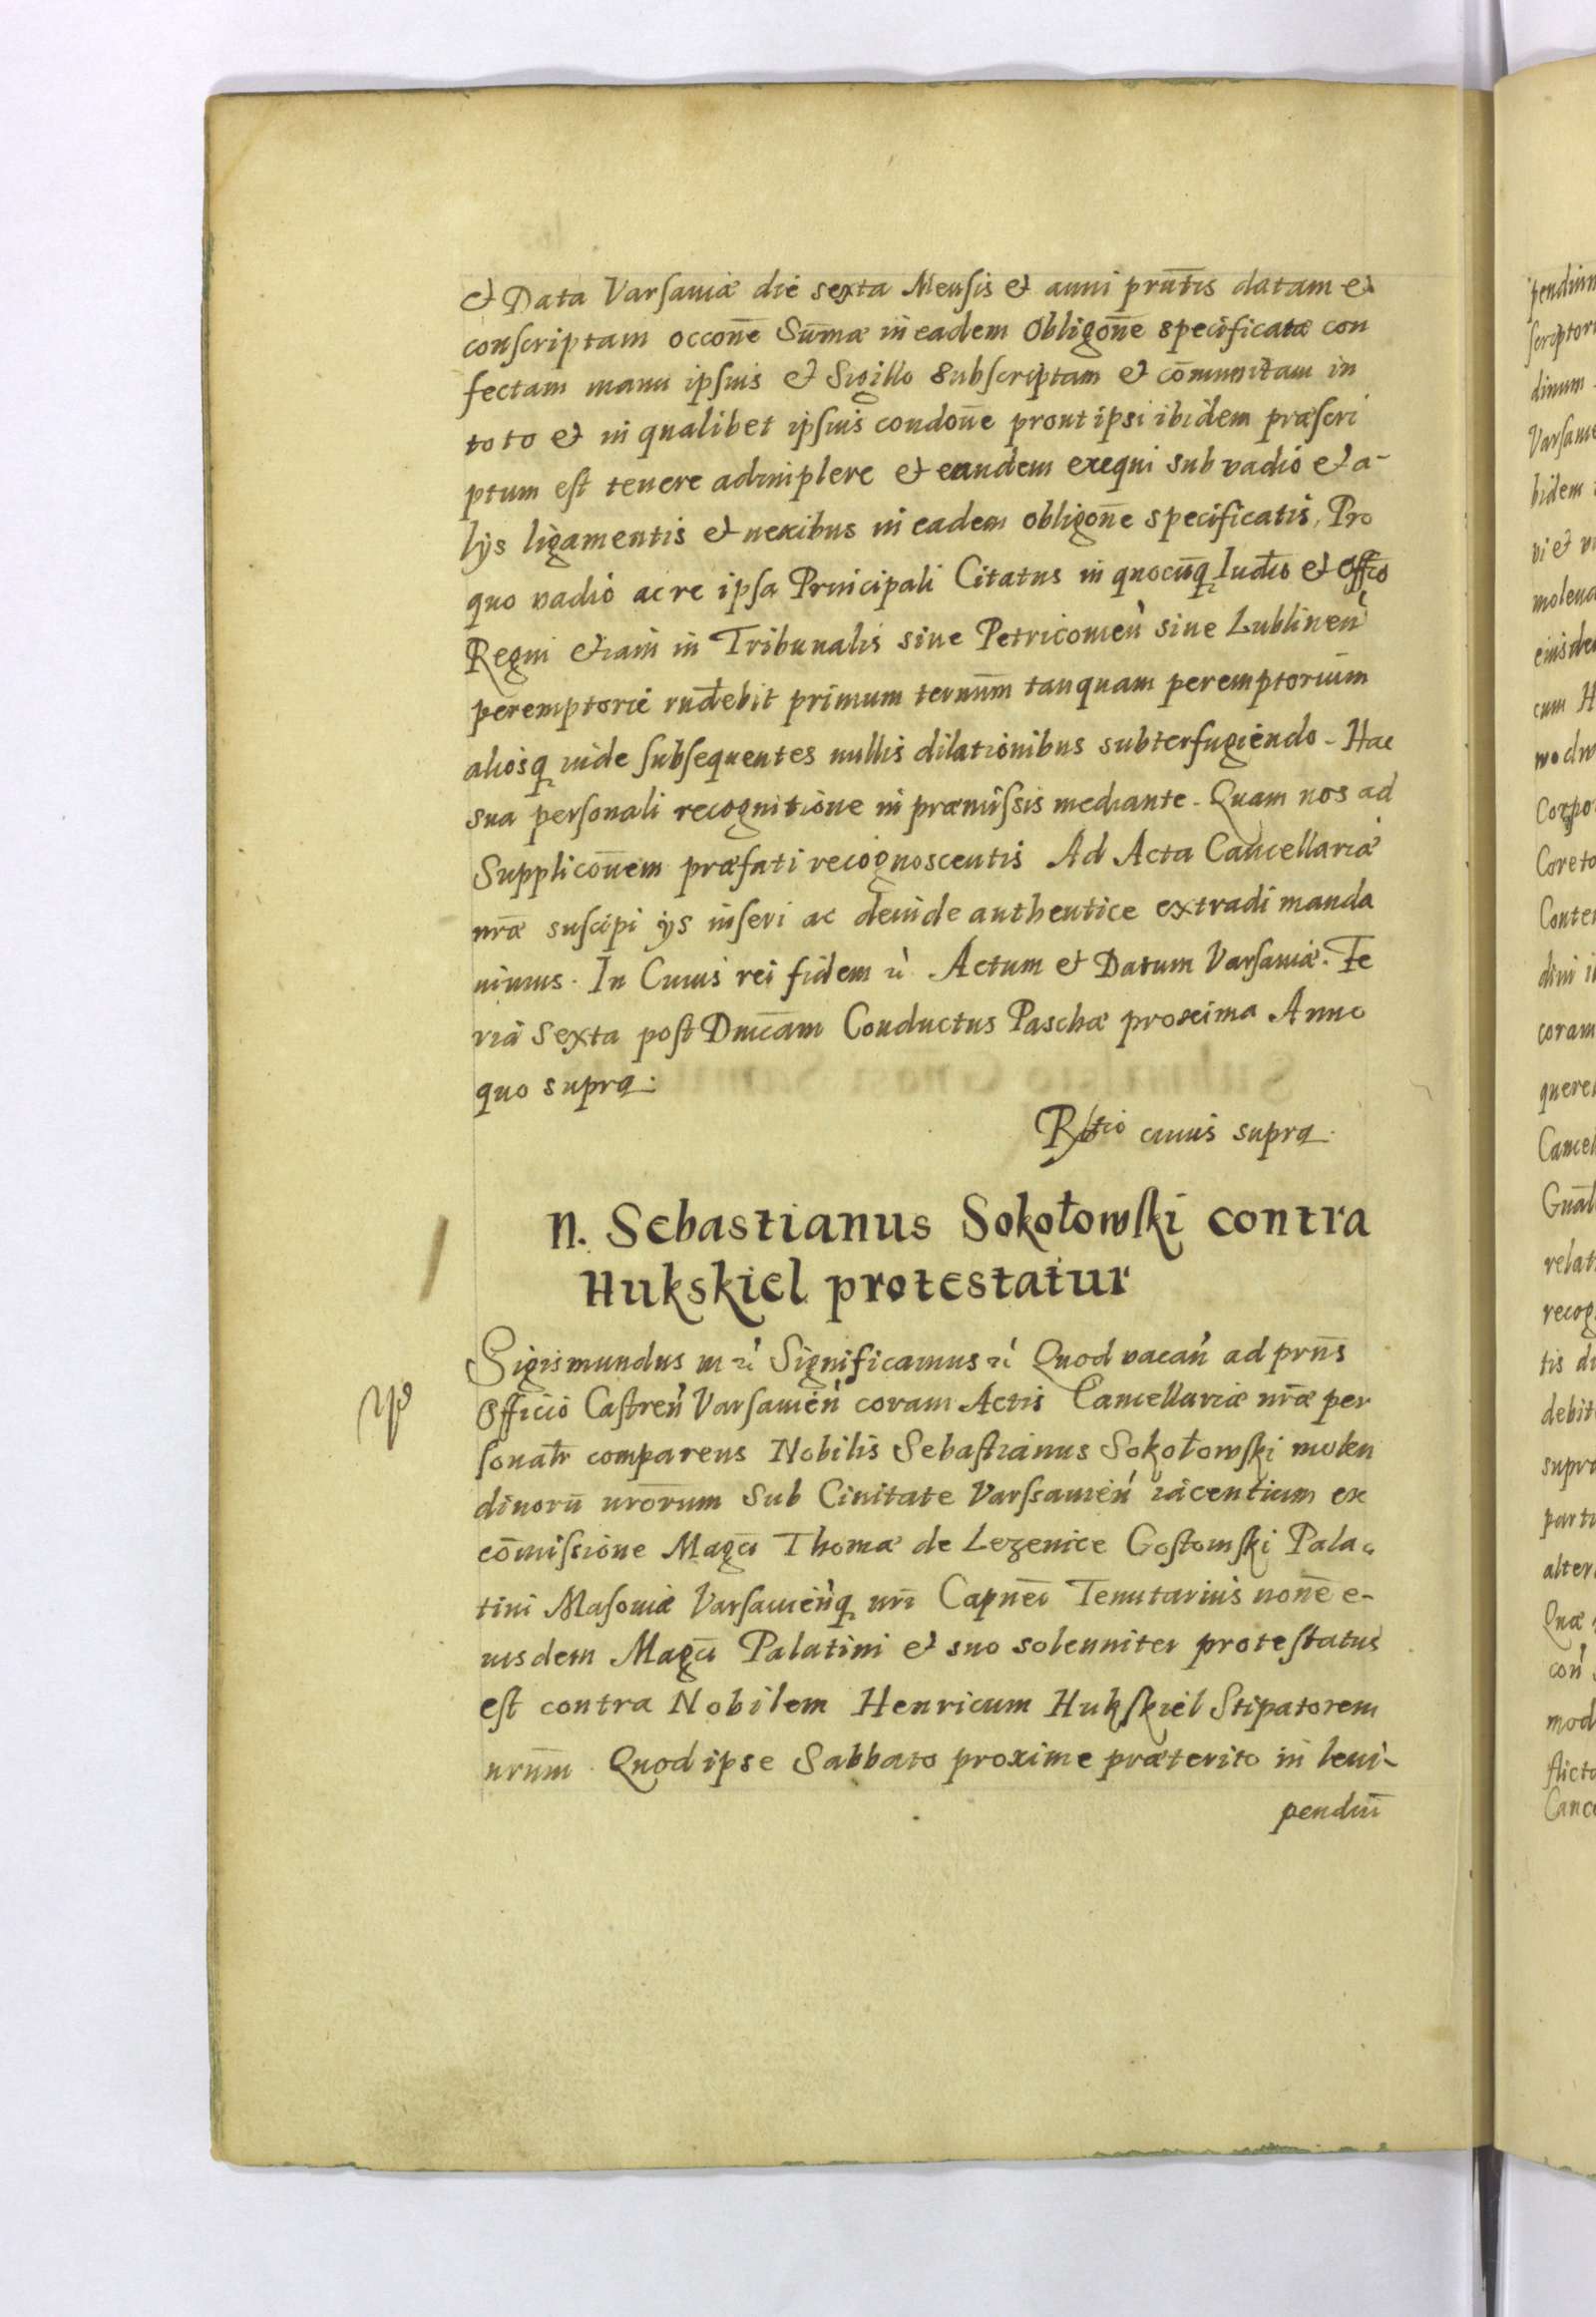 & Data Varsaviæ die sexta Mensis & anni prñtis datam &
conscriptam occoñe Sum̄æ in eadem Obligoñe specificatæ con
fectam manu ipsius & Sigillo Subscriptam & com̄unitam in
toto & in qualibet ipsius condoñe prout ipsi ibidem præscri
ptum est tenere adimplere & eandem exequi sub vadio & a-
lijs ligamentis & nexibus in eadem obligoñe specificatis, Pro
quo vadio ac re ipsa Principali Citatus in quocūq Iudıo & Offıo
Regni etiam in Tribunalis sive Petricovień sive Lublineń
peremptorie rñdebit primum termm̄ tanquam peremptorium
aliosq inde subsequentes nullis dilationibus subterfugiendo - Hac
sua personali recognitione in præmissis mediante - Quam nos ad
Supplicoñem præfati recognoscentis Ad Acta Cancellariæ
nr̄æ suscipi ijs inseri ac deinde authentice extradi manda
vimus. In Cuius rei fidem ꝛć Actum & Datum Varsaviæ. Fe
ria Sexta post Dnicam Conductus Paschæ proxima Anno
quo supra:
Rltio cuius supra.
N. Sebastianus Sokołowski contra
Hukskiel protestatur
Sigismundus III ꝛć Significamus ꝛć Quod vacań ad prn̄s
Officio Castreń Varsavień coram Actis Cancellariæ nr̄æ per
sonalr comparens Nobilis Sebastianus Sokołowski molen
dinorū nrōrum Sub Civitate Varssavień iacentium ex
com̄issione Magci Thomæ de Lezenice Gostomski Pala
tini Masoviæ Varsavieńq nrī Capnei Tenutarius noñe e-
iusdem Magci Palatini & suo solenniter protestatus
est contra Nobilem Henricum Hukskiel Stipatorem
nrūm. Quod ipse Sabbato proxime præterito in levi-
pendiū